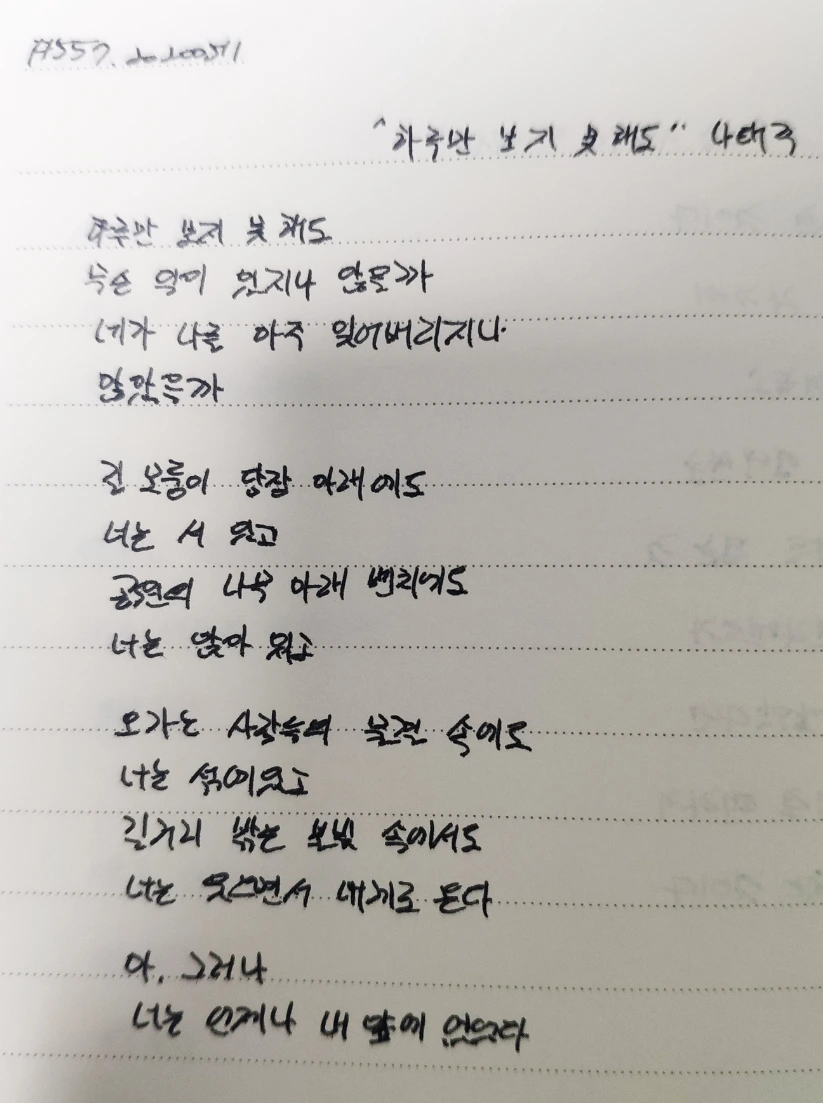 "하루만 보지 못해도" 나태주
하루만 보지 못해도
무슨 일이 있지나 않을까
네가 나를 아주 잊어버리지나
않았을까
긴 모퉁이 담장 아래에도
너는 서 있고
공원의 나무 아래 벤치에도
너는 앉아 있고
오가는 사람들의 물결 속에도
너는 섞여있고
길거리 밝은 불빛 속에서도
너는 웃으면서 내게로 온다
아, 그러나
너는 언제나 내 앞에 없었다